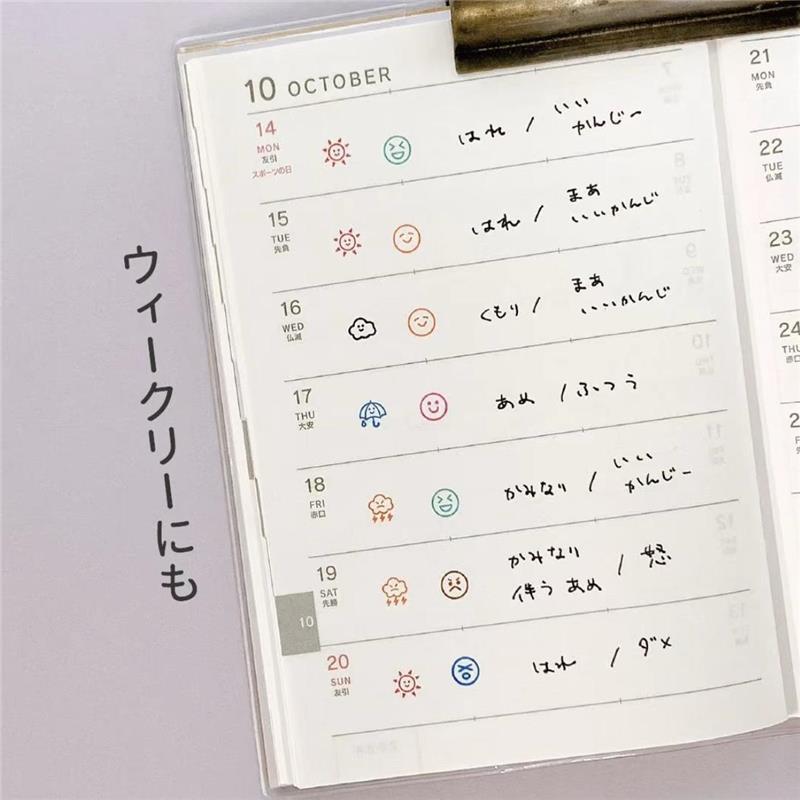 10 OCTOBER
14
MON
友引
スポーツの日
はれ / いい
かんじー
15
TUE
先負
はれ / まあ
いいかんじ
16
WED
仏滅
くもり / まあ
いいかんじ
17
THU
大安
あめ / ふつう
18
FRI
赤口
かみなり / いい
かんじー
19
SAT
先勝
かみなり
伴う あめ / 怒
10
20
SUN
友引
はれ / ダメ
21
MON
先負
22
TUE
仏滅
23
WED
大安
24
THU
赤口
ウィークリーにも